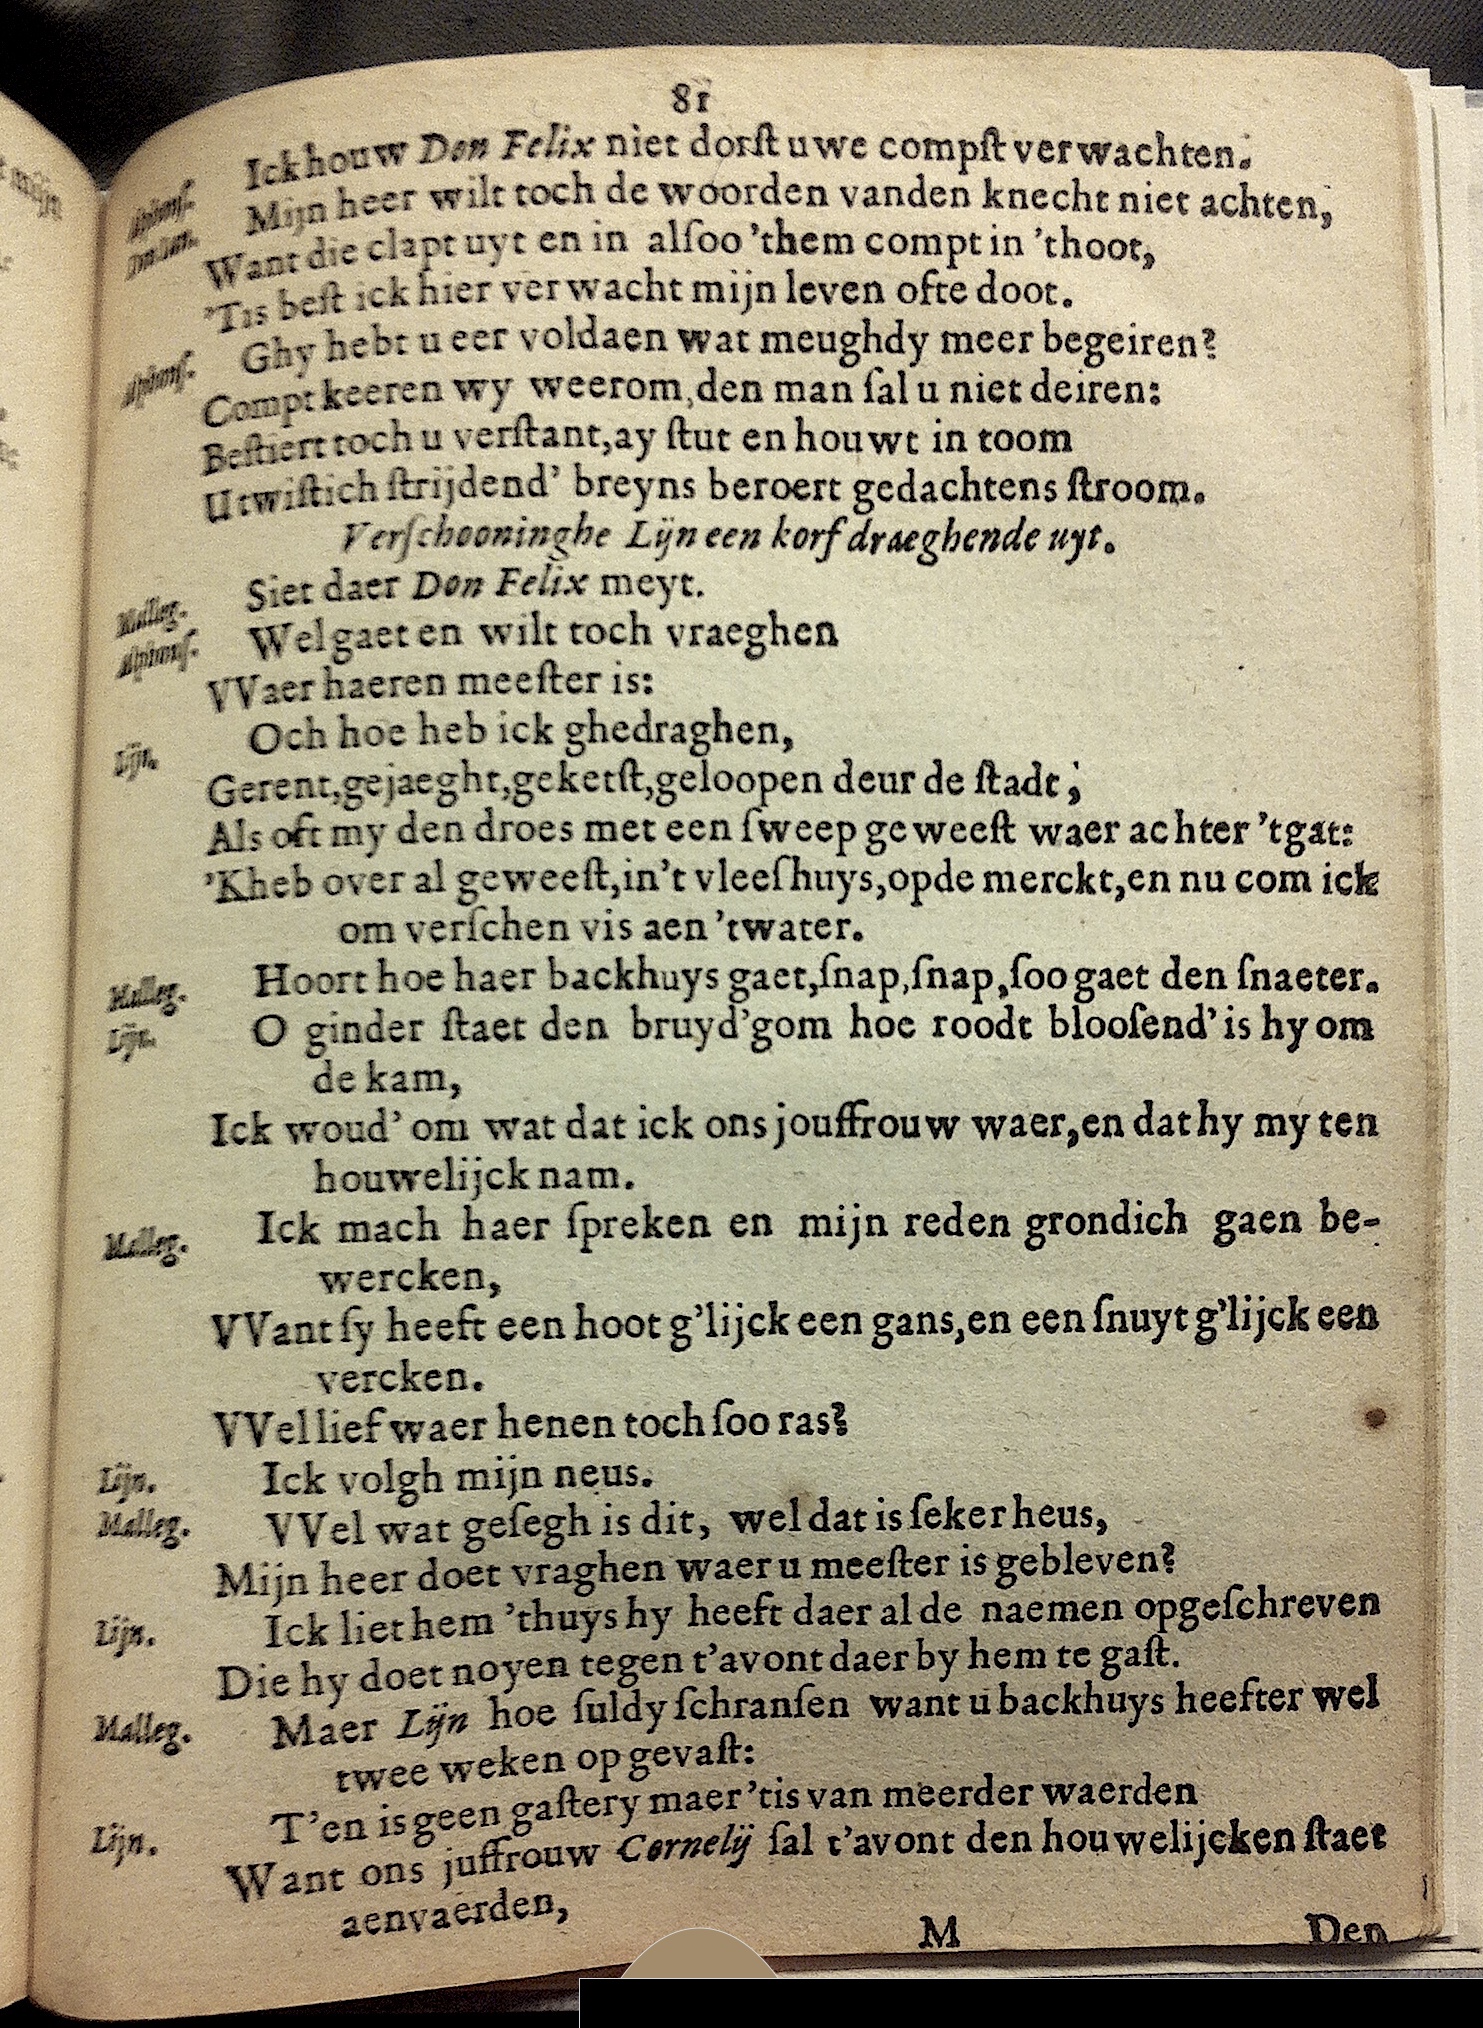 81
Ick houw Don Felix niet dorſt uwe compſt verwachten.
Alphonſ. Mijn heer wilt toch de woorden vanden knecht niet achten,
Want die clapt uyt en in alſoo 'them compt in 'thoot,
'Tis beſt ick hier verwacht mijn leven ofte doot.
Alphonſ. Ghy hebt u eer voldaen wat meughdy meer begeiren?
Compt keeren wy weerom, den man ſal u niet deiren:
Beſtiert toch u verſtant, ay ſtut en houwt in toom
U twiſtich ſtrijdend' breyns beroert gedachtens ſtroom.
Verſchooninghe Lijn een korf draeghende uyt.
Malleg. Siet daer Don Felix meyt.
Alphonſ. Wel gaet en wilt toch vraeghen
VVaer haeren meeſter is:
Lijn. Och hoe heb ick ghedraghen,
Gerent, gejaeght, geketſt, geloopen deur de ſtadt;
Als oft my den droes met een ſweep geweeſt waer achter 'tgat:
'Kheb over al geweeſt, in't vleeſhuys, opde merckt, en nu com ick
om verſchen vis aen 'twater.
Malleg. Hoort hoe haer backhuys gaet, ſnap, ſnap, ſoo gaet den ſnaeter.
Lijn. O ginder ſtaet den bruyd'gom hoe roodt blooſend' is hy om
de kam,
Ick woud' om wat dat ick ons jouffrouw waer, en dat hy my ten
houwelijck nam.
Malleg. Ick mach haer ſpreken en mijn reden grondich gaen be-
wercken,
VVant ſy heeft een hoot g'lijck een gans, en een ſnuyt g'lijck een
vercken.
VVel lief waer henen toch ſoo ras?
Lijn. Ick volgh mijn neus.
Malleg. VVel wat geſegh is dit, wel dat is ſeker heus,
Mijn heer doet vraghen waer u meeſter is gebleven?
Lijn. Ick liet hem 'thuys hy heeft daer al de naemen opgeſchreven
Die hy doet noyen tegen t'avont daer by hem te gaſt.
Malleg. Maer Lijn hoe ſuldy ſchranſen want u backhuys heefter wel
twee weken op gevaſt:
Lijn. T'en is geen gaſtery maer 'tis van meerder waerden
Want ons juffrouw Cornelij ſal t'avont den houwelijcken ſtaet
aenvaerden,
M Den